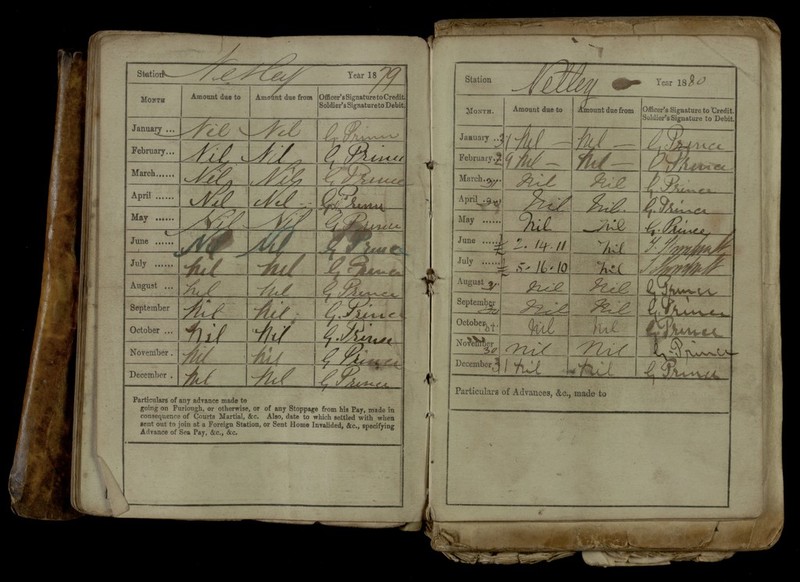 Station Netley Year 1879
Month Amount due to Amount due from Officer's Signature to Credit. Soldier's Signature to Debit.
January ... Nil Nil G Prince
February... Nil Nil G Prince
March...... Nil Nil G Prince
April ...... Nil Nil G Prince
May ...... Nil Nil G Prince
June ...... Nil Nil G Prince
July ...... Nil Nil G Prince
August ... Nil Nil G Prince
September Nil Nil G. Prince
October ... Nil Nil G. Prince
November . Nil Nil G Prince
December . Nil Nil G Prince
Particulars of any advance made to
going on Furlough, or otherwise, or of any Stoppage from his Pay, made in
consequence of Courts Martial, &c. Also, date to which settled with when
sent out to join at a Foreign Station, or Sent Home Invalided, &c., specifying
Advance of Sea Pay, &c., &c.
Station Netley Year 1880
Month. Amount due to Amount due from Officer's Signature to Credit. Soldier's Signature to Debit.
January .. 31 Nil — Nil — G Prince
February. 29 Nil — Nil — G Prince
March Nil Nil G Prince
April Nil Nil. G. Prince
May ...... Nil Nil G. Prince
June ...... 2.14.11 Nil
July ...... 5.16.10 Nil
August 31 Nil Nil G Prince
September 30 Nil Nil G. Prince
October 31 Nil Nil G Prince
November 30 Nil Nil G. Prince
December. 31 Nil Nil G Prince
Particulars of Advances, &c., made to